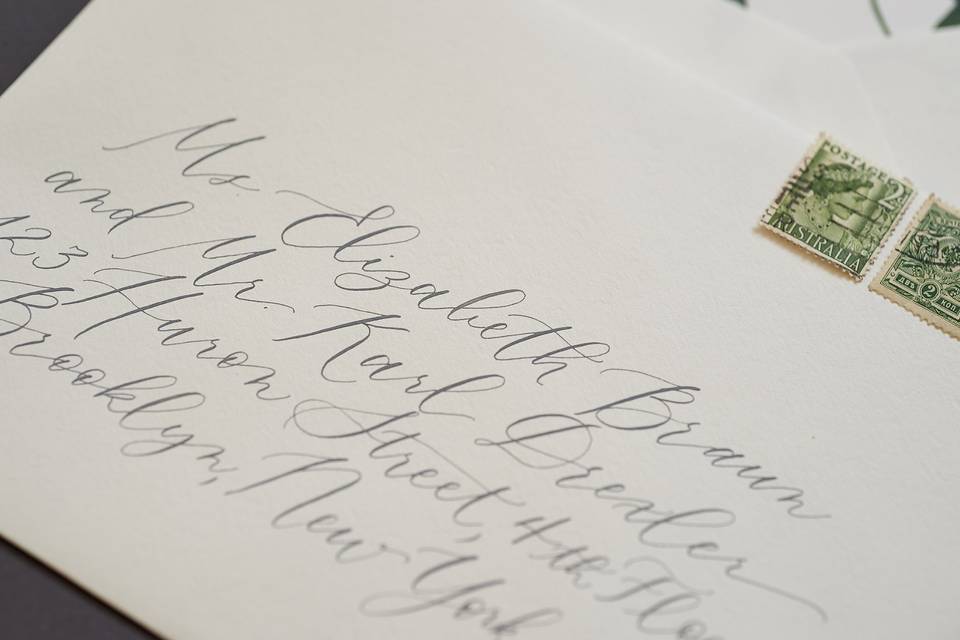 Ms. Elizabeth Braun
and Mr. Karl Drexler
123 Huron Street, 4th Floo
Brooklyn, New York
POSTAGE
2
AUSTRALIA
2 КОП